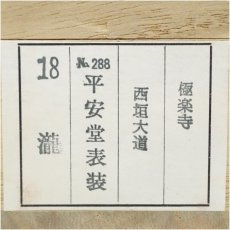 極楽寺
西垣大道
№288
平安堂表装
18
瀧